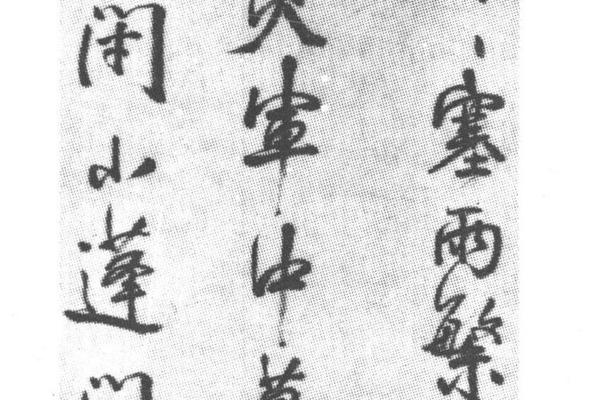 塞雨繁
軍中
閑小蓬